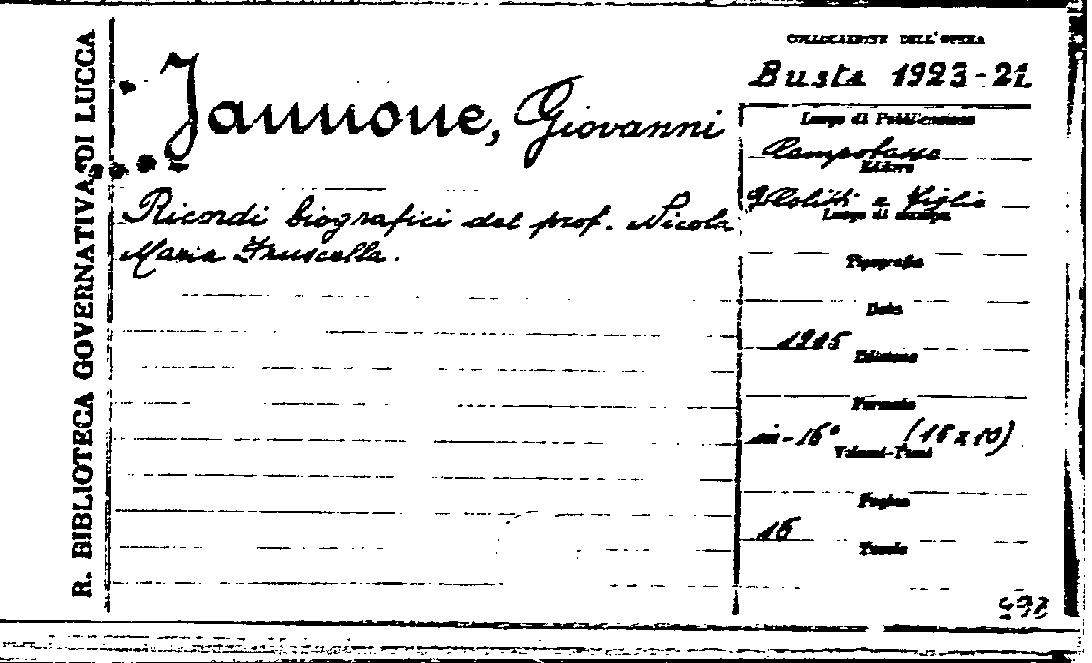 R. BIBLIOTECA GOVERNATIVA DI LUCCA
Jannone, Giovanni
Ricordi biografici del prof. Nicola
Maria Fruscella.
COLLOCAZIONE DELL'OPERA
Busta 1923-21
Luogo di Pubblicazione
Campobasso
Editore
Colitti e Figlio
Luogo di stampa
Tipografia
Data
1905
Edizione
Formato
in-16° (15x10)
Volumi-Tomi
Pagine
16
Tavole